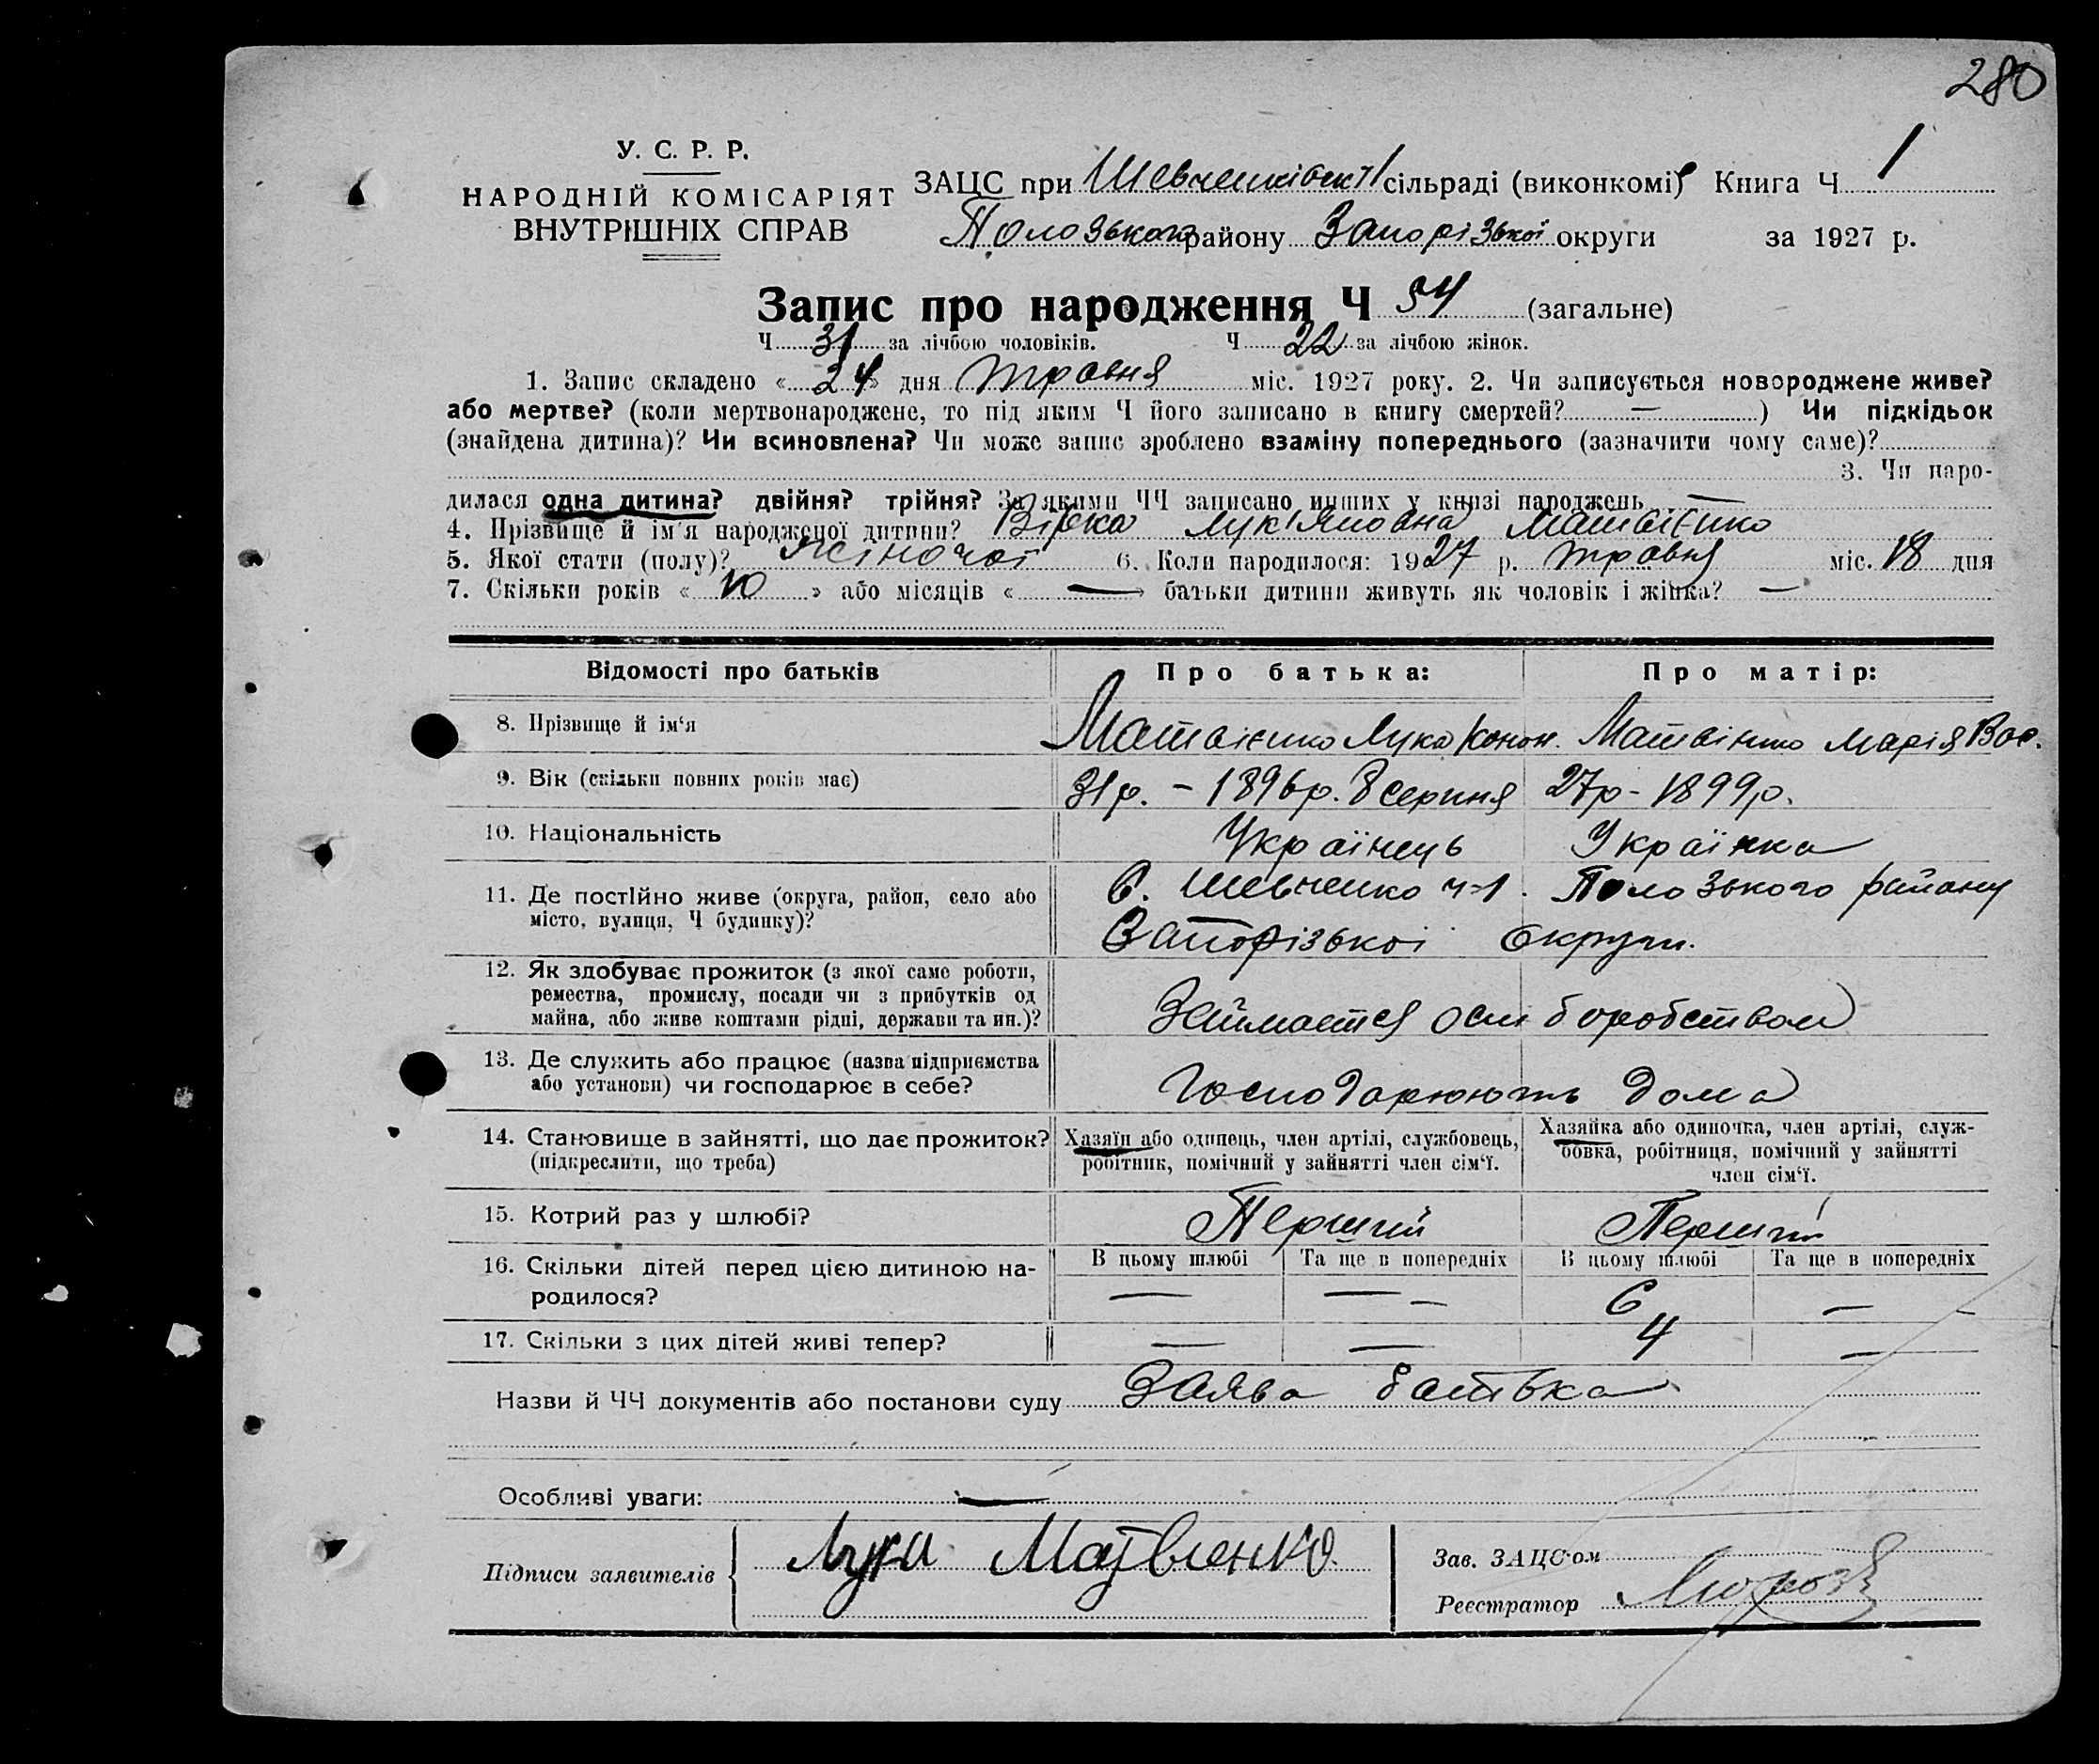 280
У. С. Р. Р.
НАРОДНІЙ КОМІСАРІЯТ
ВНУТРІШНІХ СПРАВ
ЗАЦС при Шевченківськ. сільраді (виконкомі) Книга Ч 1
Полозького району Запорізької округи за 1927 р.
Запис про народження Ч 54 (загальне)
Ч 31 за лічбою чоловіків. Ч 22 за лічбою жінок.
1. Запис складено « 24 » дня травня міс. 1927 року. 2. Чи записується новороджене живе?
або мертве? (коли мертвонароджене, то під яким Ч його записано в книгу смертей? — ) Чи підкідьок
(знайдена дитина)? Чи всиновлена? Чи може запис зроблено взаміну попереднього (зазначити чому саме)?
3. Чи наро-
дилася одна дитина? двійня? трійня? За якими ЧЧ записано инших у книзі народжень —
4. Прізвище й ім'я народженої дитини? Вірка Лук'яновна Матвієнко
5. Якої стати (полу)? жіночої 6. Коли народилося: 1927 р. травня міс. 18 дня
7. Скільки років « 10 » або місяців « — » батьки дитини живуть як чоловік і жінка? —
Відомості про батьків Про батька: Про матір:
8. Прізвище й ім‘я Матвієнко Лука Конон. Матвієнко Марія Вас.
9. Вік (скільки повних років має) 31 р. – 1896 р. 8 серпня 27 р – 1899 р.
10. Національність Українець Українка
11. Де постійно живе (округа, район, село або С. Шевченко ч=1. Полозького району
місто, вулиця, Ч будинку)? Запорізької округи.
12. Як здобуває прожиток (з якої саме роботи,
ремества, промислу, посади чи з прибутків од
майна, або живе коштами рідні, держави та ин.)? Займается хліборобством
13. Де служить або працює (назва підприємства
або установи) чи господарює в себе? Господарюють дома
14. Становище в зайнятті, що дає прожиток? Хазяїн або одинець, член артілі, службовець, Хазяйка або одиночка, член артілі, служ-
(підкреслити, що треба) робітник, помічний у зайнятті член сім‘ї. бовка, робітниця, помічний у зайнятті
член сім‘ї.
15. Котрий раз у шлюбі? Перший Перший
16. Скільки дітей перед цією дитиною на- В цьому шлюбі Та ще в попередніх В цьому шлюбі Та ще в попередніх
родилося? — — – 6 — -
17. Скільки з цих дітей живі тепер? — — 4 —
Назви й ЧЧ документів або постанови суду Заява батька
Особливі уваги: —
Підписи заявителів Лука Матвіенко. Зав. ЗАЦС‘ом
Реєстратор